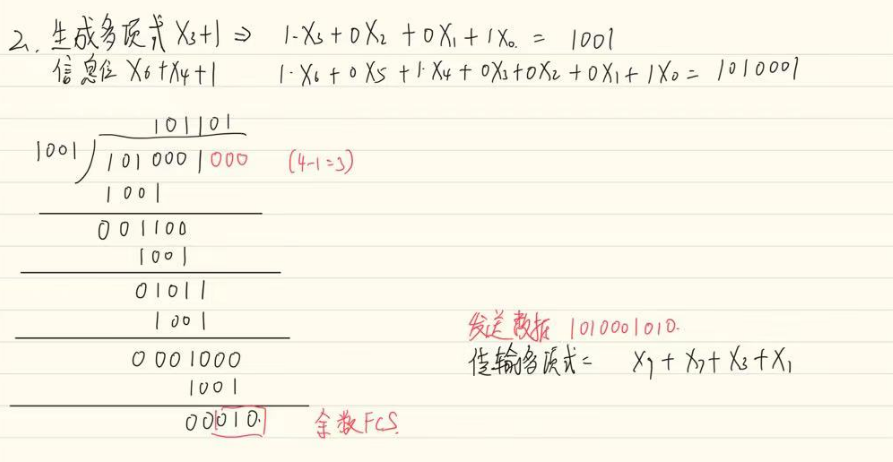 2. 生成多项式 X3+1 ⇒ 1·X3+0X2+0X1+1X0. = 1001
信息位 X6+X4+1 1·X6+0X5+1·X4+0X3+0X2+0X1+1X0= 1010001
101101
1001 1010001000 (4-1=3)
1001
001100
1001
01011
1001
0001000
1001
00010. 余数FCS.
发送数据 1010001010.
传输多项式= X9+X7+X3+X1